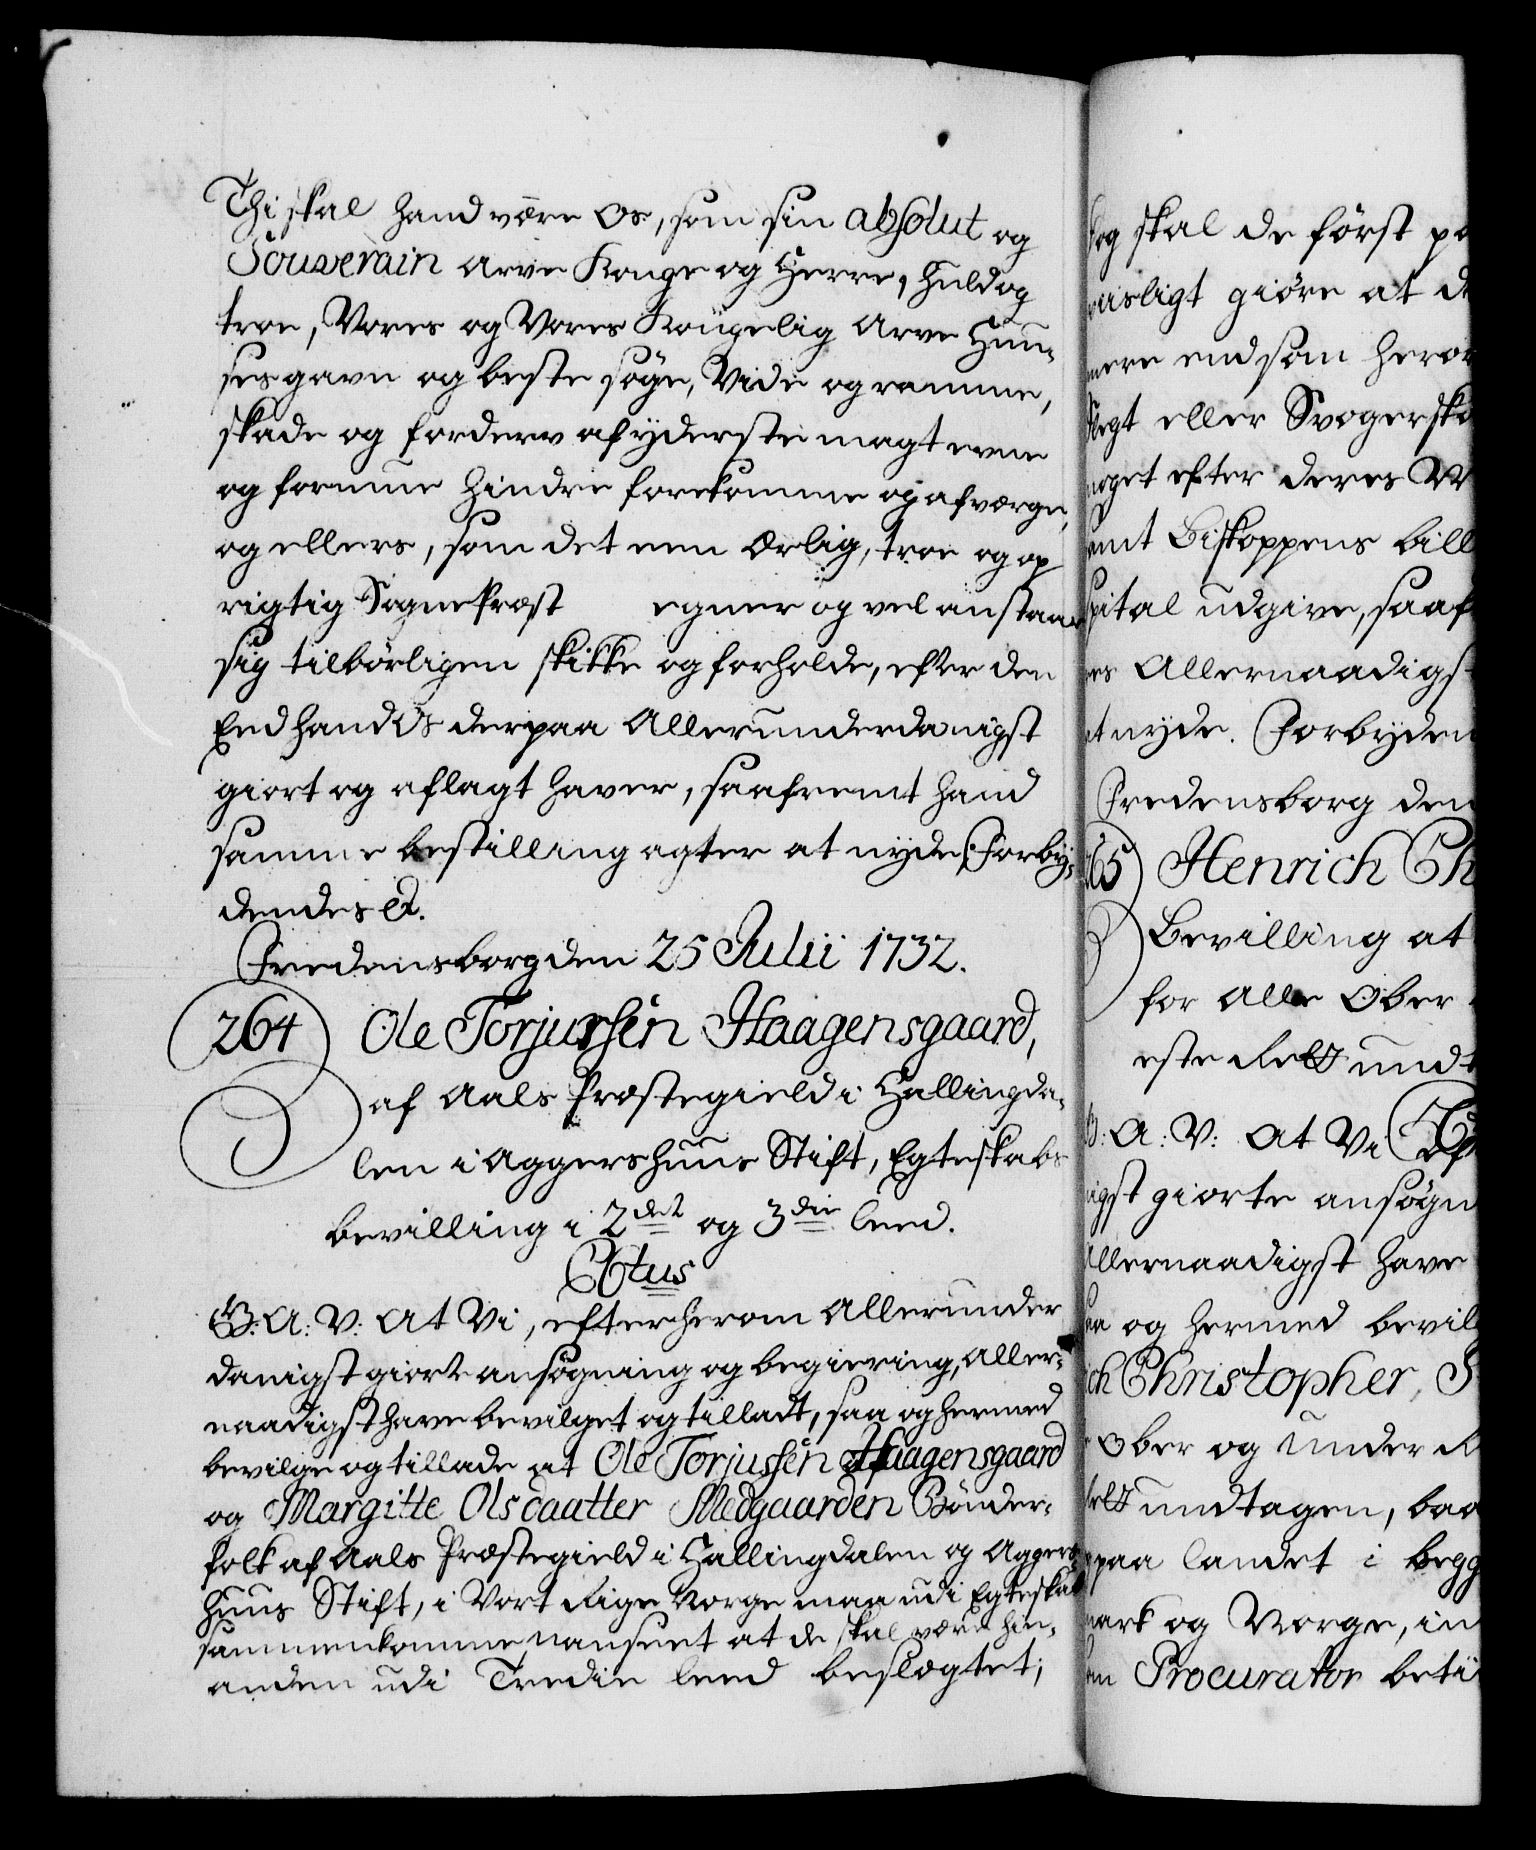 Thi skal hand være Os, som sin absolut og
Souverain Arve Konge og Herre, huld og
troe, Vores og Vores Kongelig Arve Huu-
ses gavn og beste søge, Vide og ramme,
skade og forderv af yderste magt evne
og formue hindre forekomme og afværge,
og ellers, som det een Ærlig, troe og op
rigtig SognePræst egner og vel anstaar
sig tilbørligen skikke og forholde, efter den
Eed hand Os derpaa Allerunderdanigst
giort og aflagt haver, saafremt hand
samme bestilling agter at nyde, Forby-
dendes &.
Fredensborg den 25 Julii 1732.
264 Ole Torjussen Haagensgaard,
af Aals Præstegield i Hallingda-
len i Aggershuus Stift, Egteskabs
bevilling i 2det og 3die leed.
G: A: V: At Vi, efter herom Allerunder
danigst giort ansøgning og begiering, Aller-
naadigst have bevilget og tilladt, saa og hermed
bevilge og tillade at Ole Torjussen Haagensgaard
og Margitte Olsdaatter Medgaarden Bønder-
folk af Aals Præstegield i Hallingdalen og Aggers-
huus Stift, i Vort Rige Norge maa udi Egteskab
sammenkomme uanseet at de skal være hin-
anden udi Tredie leed beslægtet;
og skal de først
viisligt giøre at
mere end som
eller Svogerska
noget efter deres
Biskoppens bill
udgive, saaf
Allernaadigst
at nyde. Forbyden
Fredensborg den
265 Henrich Ch
Bevilling at
for Alle Ober
este Rett undt
G: A: V: At Vi
giorte ansøgn
Allernaadigst have
og hermed bevil
Christopher,
Ober og Under R
undtagen, baa
paa landet i begg
og Norge, in
Procurator